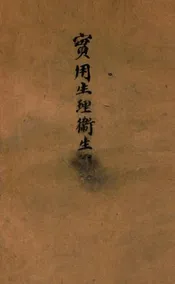 實用生理衞生